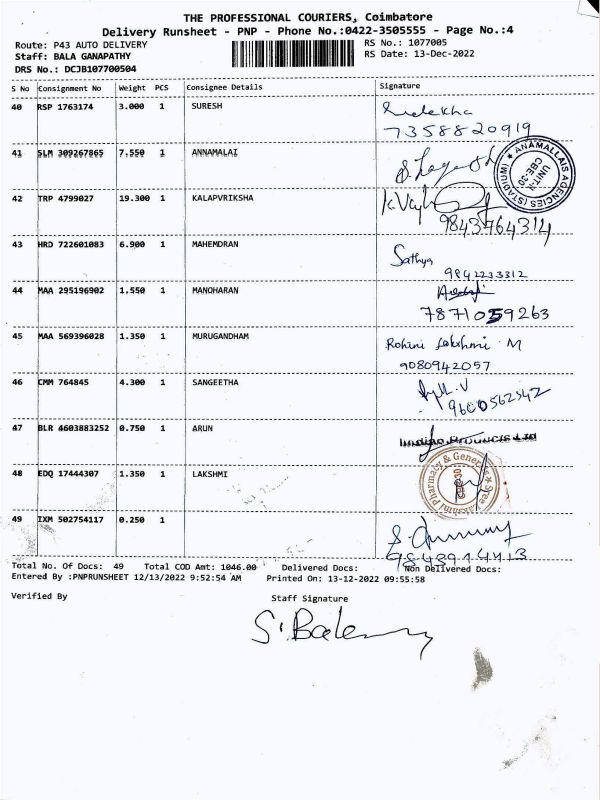 THE PROFESSIONAL COURIERS, Coimbatore
Delivery Runsheet - PNP - Phone No.:0422-3505555 - Page No.:4
Route: P43 AUTO DELIVERY RS No.: 1077005
Staff: BALA GANAPATHY RS Date: 13-Dec-2022
DRS No.: DCJB107700504
S No Consignment No Weight PCS Consignee Details Signature
40 RSP 1763174 3.000 1 SURESH
7358820919
41 SLM 309267865 7.550 1 ANNAMALAI
ANAMALLAIS AGENCIES (STADIUM) UNIT-N CBE-30
42 TRP 4799027 19.300 1 KALAPVRIKSHA
9843764314
43 HRD 722601083 6.900 1 MAHEMDRAN Sathya
9842233312
44 MAA 295196902 1.550 1 MANOHARAN
7871059263
45 MAA 569396028 1.350 1 MURUGANDHAM Rohini Lakshmi M
9080942057
46 CMM 764845 4.300 1 SANGEETHA
9600562342
47 BLR 4603883252 0.750 1 ARUN
48 EDQ 17444307 1.350 1 LAKSHMI
Sree Lakshmi Pharmacy & General
49 IXM 502754117 0.250 1
9843914413
Total No. Of Docs: 49 Total COD Amt: 1046.00 Delivered Docs: Non Delivered Docs:
Entered By :PNPRUNSHEET 12/13/2022 9:52:54 AM Printed On: 13-12-2022 09:55:58
Verified By Staff Signature